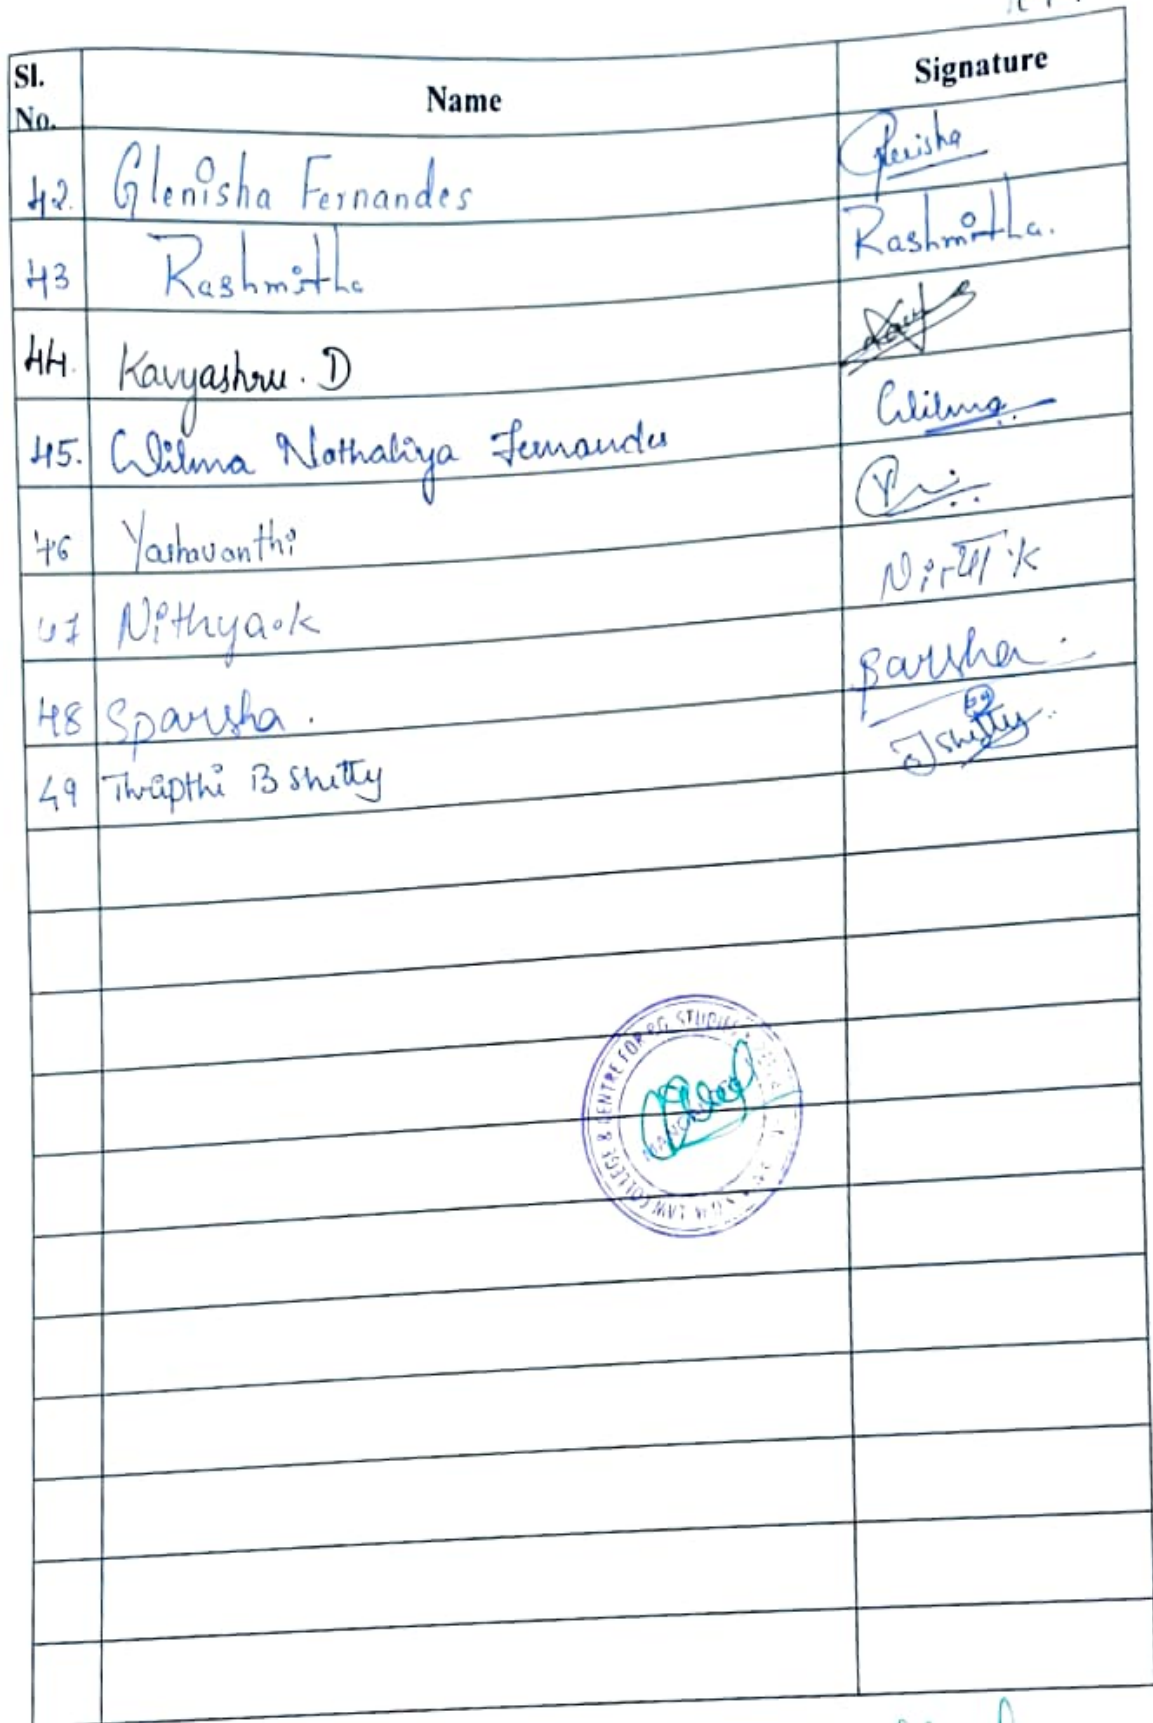 Sl. No. Name Signature
42. Glenisha Fernandes Glenisha
43 Rashmitha Rashmitha.
44. Kavyashru. D
45. Wilma Nathaliya Fernandes Wilma
46 Yashavanthi
47 Nithya.k
48 Sparsha.
49 Thrapthi B Shetty Shetty
LAW COLLEGE & CENTRE FOR P.G. STUDIES